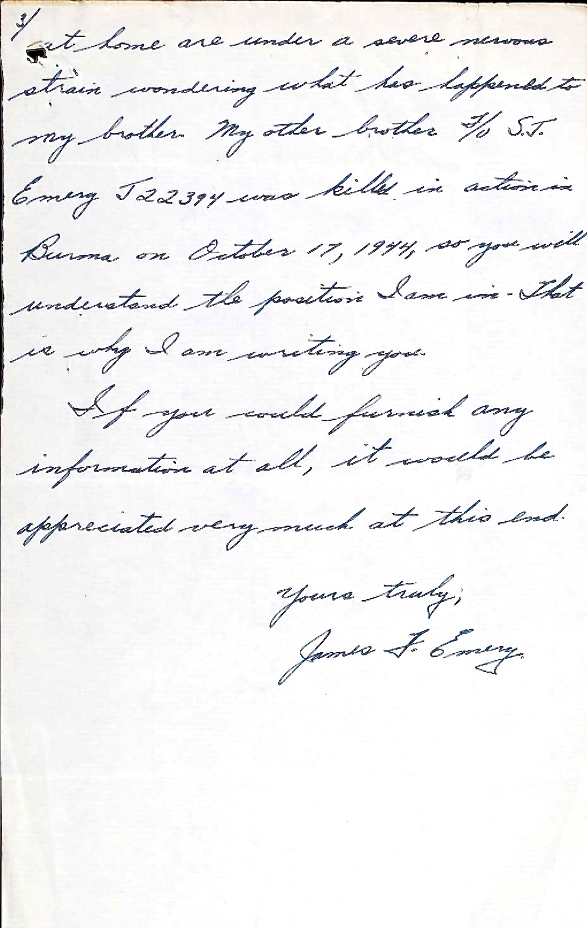 3/
at home are under a severe nervous
strain wondering what has happened to
my brother. My other brother F/O S.J.
Emery J22394 was killed in action in
Burma on October 17, 1944, so you will
understand the position I am in. That
is why I am writing you.
If you could furnish any
information at all, it would be
appreciated very much at this end.
Yours truly,
James F. Emery.